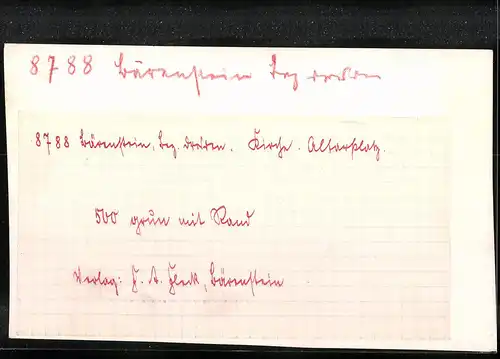 8788 Bärenstein Bez Dresden
8788 Bärenstein, Bez. Dresden. Kirche. Altarplatz.
500 grün mit Rand
Verlag: F. A. Fleck, Bärenstein